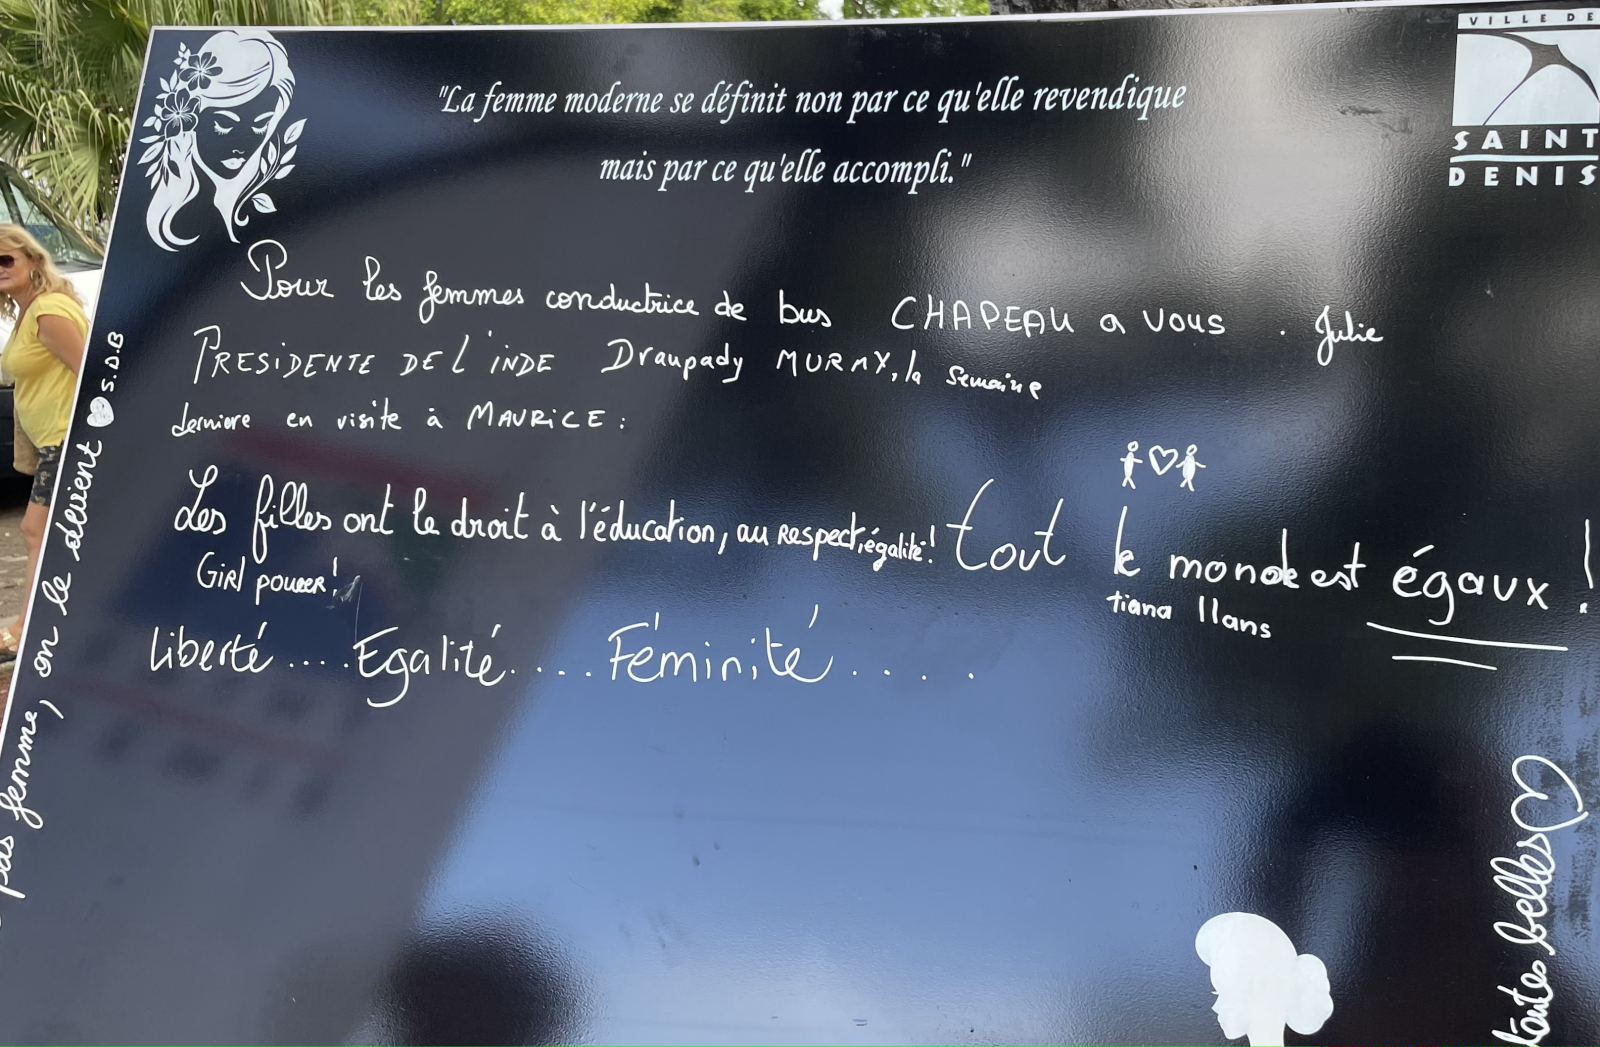 "La femme moderne se définit non par ce qu'elle revendique
mais par ce qu'elle accompli."
VILLE DE
SAINT
DENIS
Pour les femmes conductrice de bus CHAPEAU a vous . Julie
PRESIDENTE DE L'INDE Draupady MURMY, la semaine
derniere en visite à MAURICE :
Les filles ont le droit à l'éducation, au respect, égalité!
Girl power!
tout le monde est égaux !
tiana 11ans
Liberté .... Egalité .... Féminité ....
pas femme, on le devient ♥ S.D.B
toutes belles♡